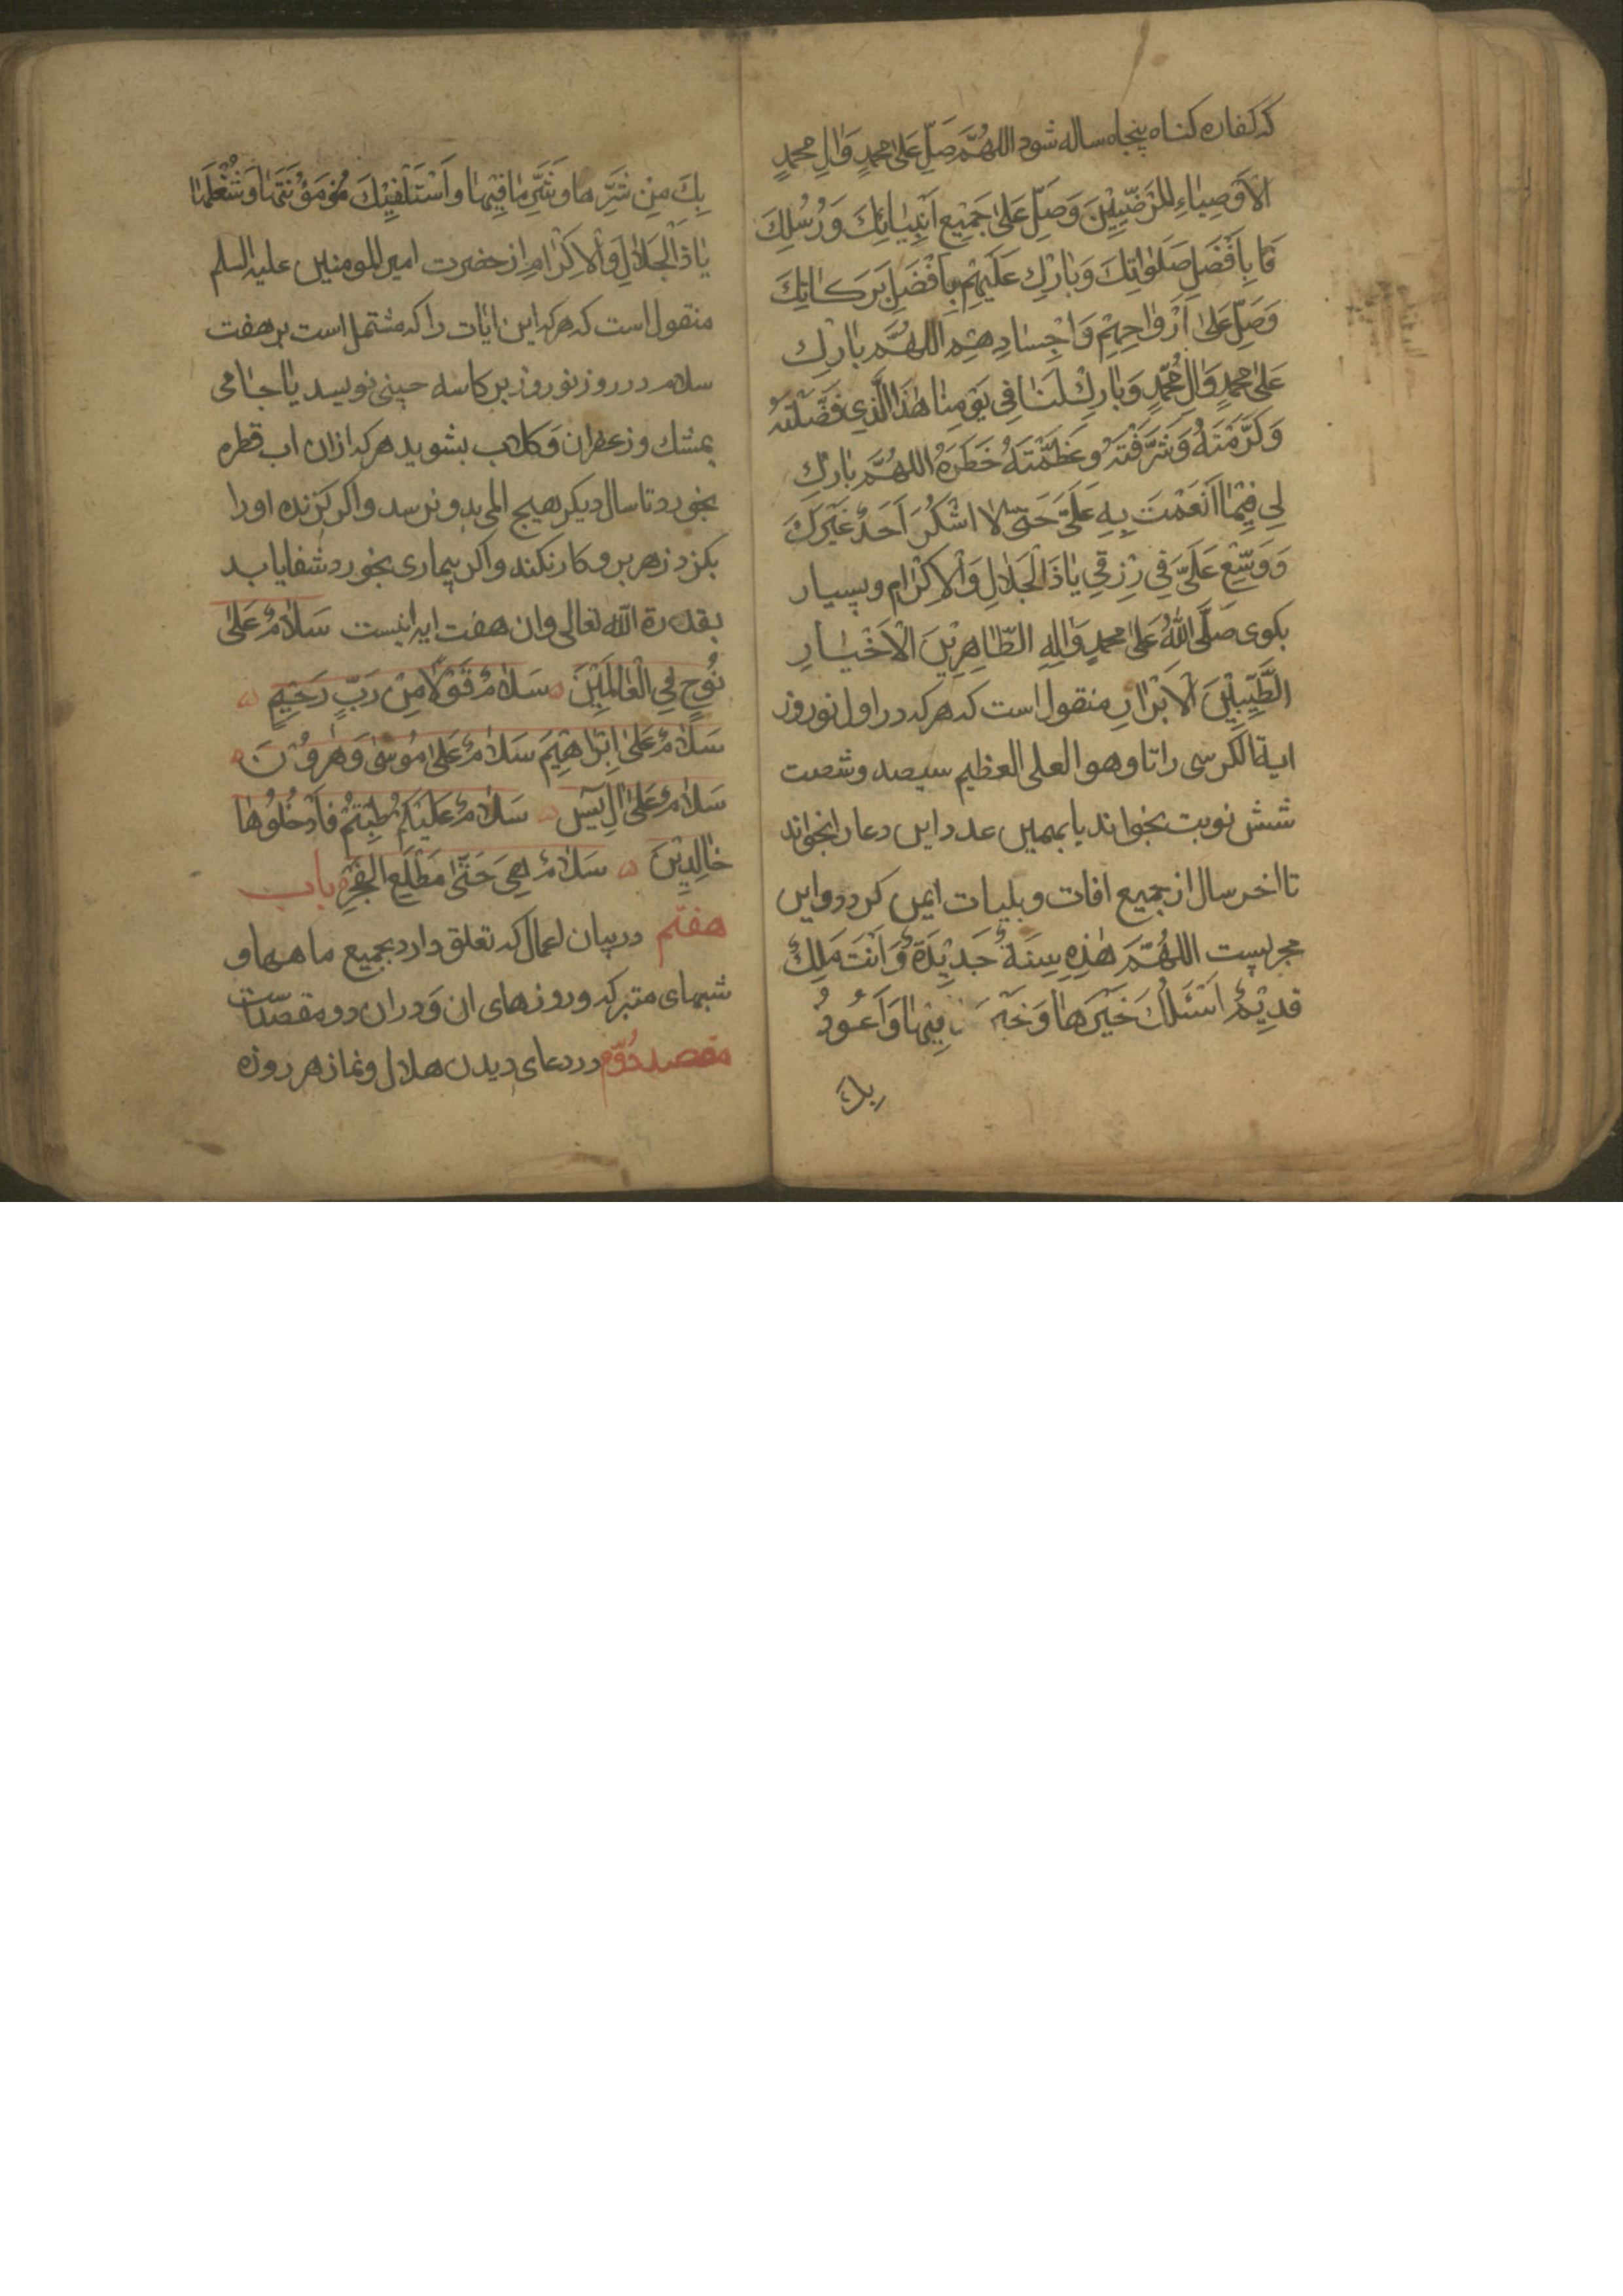 که کفاره کناه پنجاه ساله شود اللهُمَّ صَلِّ عَلىٰ محمدٍ وَاٰلِ محمدٍ
الاَوصِيٰاءِ المَرْضِيّينَ وَصَلِّ عَلىٰ جَمِيْعِ اَنْبِيٰائِكَ وَرُسُلِكَ
بِاَفْضَلِ صَلَوٰاتِكَ وَبٰارِك عَلَيهِمْ بِاَفْضَلِ بَرَكٰاتِكَ
وَصَلِّ عَلىٰ اَرْوٰاحِهِمْ وَاَجْسٰادِهِمْ اللهُمَّ بٰارِك
عَلىٰ محمدٍ وَاٰلِ مُحَمَّدٍ وَبٰارِكْ لَنٰا فِي يَوْمِنٰا هٰذَا الَّذِي فَضَّلْتَهُ
وَكَرَّمْتَهُ وَشَرَّفْتَهُ وَعَظَّمْتَهُ خَطَرَهُ اللهُمَّ بٰارِكِ
لِي فِيْمٰا اَنْعَمْتَ بِهِ عَلَيَّ حَتّىٰ لا اَشْكُرَ اَحَدً غَيْرَكَ
وَوَسِّعْ عَلَيَّ فِي رِزْقِي يٰا ذَالْجَلٰالِ وَالْاِكْرٰام وبسیار
بکوی صَلَّى اللهُ عَلىٰ محمدٍ وَاٰلِهِ الطّٰاهِرِيْنَ الْاَخْيٰارِ
الطَّيِّبِيْنَ الْاَبْرٰارِ منقول است که هرکه در اول نوروز
ایة الکرسی را تا وهو العلی العظیم سیصد وشصت
شش نوبت بخواند یا بهمین عدد این دعا را بخواند
تا اخر سال از جمیع افات و بلیات ایمن کردد و این
مجربست اللهُمَّ هٰذِهِ سَنَةٌ جَدِيْدَةٌ وَاَنْتَ مَلِكٌ
قَدِيْمٌ اَسْئَلُكَ خَيْرَهٰا وَخَيْرَ مٰا فِيْهٰا وَاَعُوذُ
بِكَ
بِكَ مِن شَرِّهٰا وَشَرِّ مٰا فِيْهٰا وَاَسْتَكْفِيْكَ مَؤُنَتَهٰا وَشُغْلَهٰا
يٰا ذَالْجَلٰالِ وَالْاِكْرٰامِ از حضرت امیر المومنین علیه السلم
منقول است که هرکه این ایات را که مشتمل است بر هفت
سلام در روز نوروز بر کاسه چینی نویسد یا جامی
بمشك و زعفران و کلاب بشوید هرکه ازان اب قطره
بخورد تا سال دیکر هیچ المی بدو نرسد و اکر کزنده اورا
بکزد زهر برو کار نکند و اکر بیماری بخورد شفا یابد
بقدرة الله تعالی وان هفت ایه اینست سَلٰامٌ عَلىٰ
نُوحٍ فِي الْعٰالَمِيْنَ سَلٰامٌ قَوْلًا مِنْ رَبٍّ رَحِيْمٍ
سَلٰامٌ عَلىٰ اِبْرٰاهِيْمَ سَلٰامٌ عَلىٰ مُوسىٰ وَهٰرُوْنَ
سَلٰامٌ عَلىٰ اٰلِ يٰسٓ سَلٰامٌ عَلَيْكُمْ طِبْتُمْ فَادْخُلُوهٰا
خٰالِدِيْنَ سَلٰامٌ هِيَ حَتّىٰ مَطْلَعِ الفَجْرِ باب
هفتم در بیان اعمال که تعلق دارد بجمیع ماهها و
شبهای متبرکه و روزهای ان و دران دو مقصدست
مقصد دُوّم در دعای دیدن هلال و نماز هر روزه